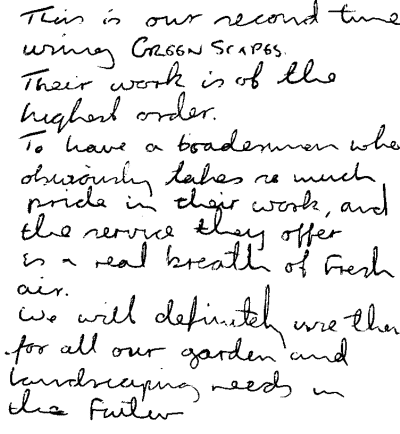 This is our second time
using GREENSCAPES.
Their work is of the
highest order.
To have a tradesman who
obviously takes so much
pride in their work, and
the service they offer
is a real breath of fresh
air.
We will definitely use them
for all our garden and
landscaping needs in
the Future